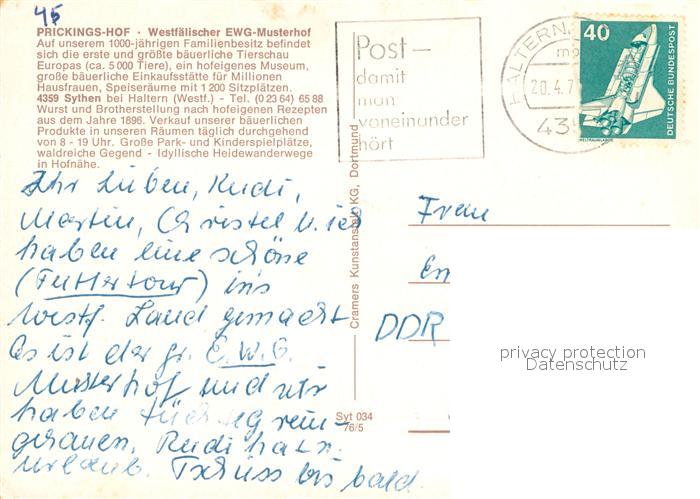 45
PRICKINGS-HOF · Westfälischer EWG-Musterhof
Auf unserem 1000-jährigen Familienbesitz befindet
sich die erste und größte bäuerliche Tierschau
Europas (ca. 5 000 Tiere), ein hofeigenes Museum,
große bäuerliche Einkaufsstätte für Millionen
Hausfrauen, Speiseräume mit 1 200 Sitzplätzen.
4359 Sythen bei Haltern (Westf.) - Tel. (0 23 64) 65 88
Wurst und Brotherstellung nach hofeigenen Rezepten
aus dem Jahre 1896. Verkauf unserer bäuerlichen
Produkte in unseren Räumen täglich durchgehend
von 8 - 19 Uhr. Große Park- und Kinderspielplätze,
waldreiche Gegend - Idyllische Heidewanderwege
in Hofnähe.
Ihr Lieben, Rudi,
Martin, Christel u. ich
haben eine schöne
(Futtertour) ins
westf. Land gemacht
Es ist der gr. E.W.G.
Musterhof und wir
haben tüchtig rein-
gehauen. Rudi hat
Urlaub. Tschüss bis bald.
Cramers Kunstanstalt KG, Dortmund
Syt 034
76/5
Post-
damit
man
voneinander
hört
HALTERN
20.4.7
435
40
DEUTSCHE BUNDESPOST
WELTRAUMLABOR
Frau
DDR
privacy protection
Datenschutz